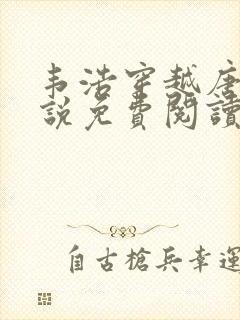 韦浩穿越唐
説免費閱讀
自古槍兵幸運